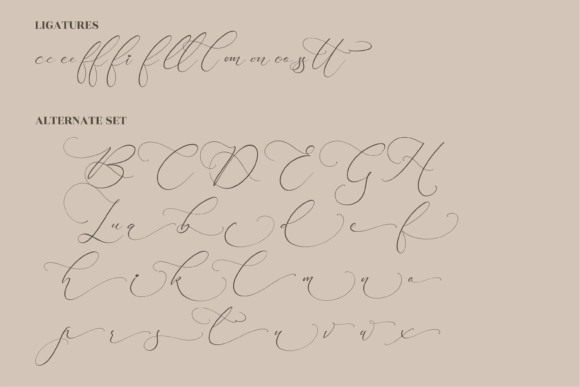 LIGATURES
cc ee ff fi fl ll tl om on oo ss tt
ALTERNATE SET
B C D E G H
L u a b c d e f
h i k l m n o
p r s t u v w x